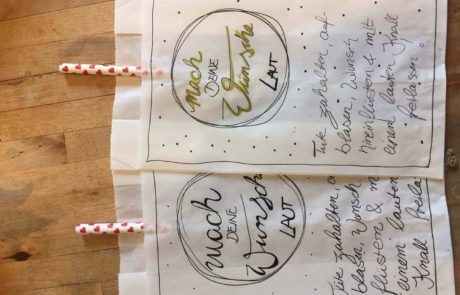 mach
DEINE
Wünsche
LAUT
Tüte zuhalten, auf-
blasen, Wunsch
hineinflüstern & mit
einem lauten Knall
freilassen.
mach
DEINE
Wunsch
LAUT
Tüte zuhalten, a
blasen, Wunsch
flüstern & m
einem lauten
Knall freila